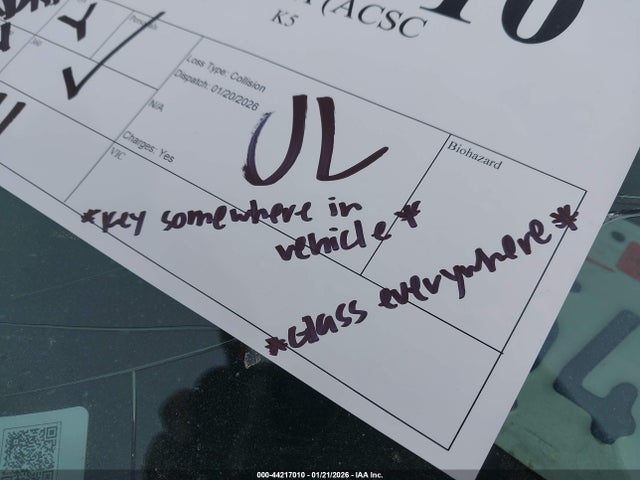 (ACSC
K5
10
Y
✓
Loss Type: Collision
Dispatch: 01/20/2026
N/A
Charges: Yes
VIC
UL
Biohazard
*Key somewhere in
vehicle*
*Glass everywhere*
4
000-44217010 - 01/21/2026 - IAA Inc.